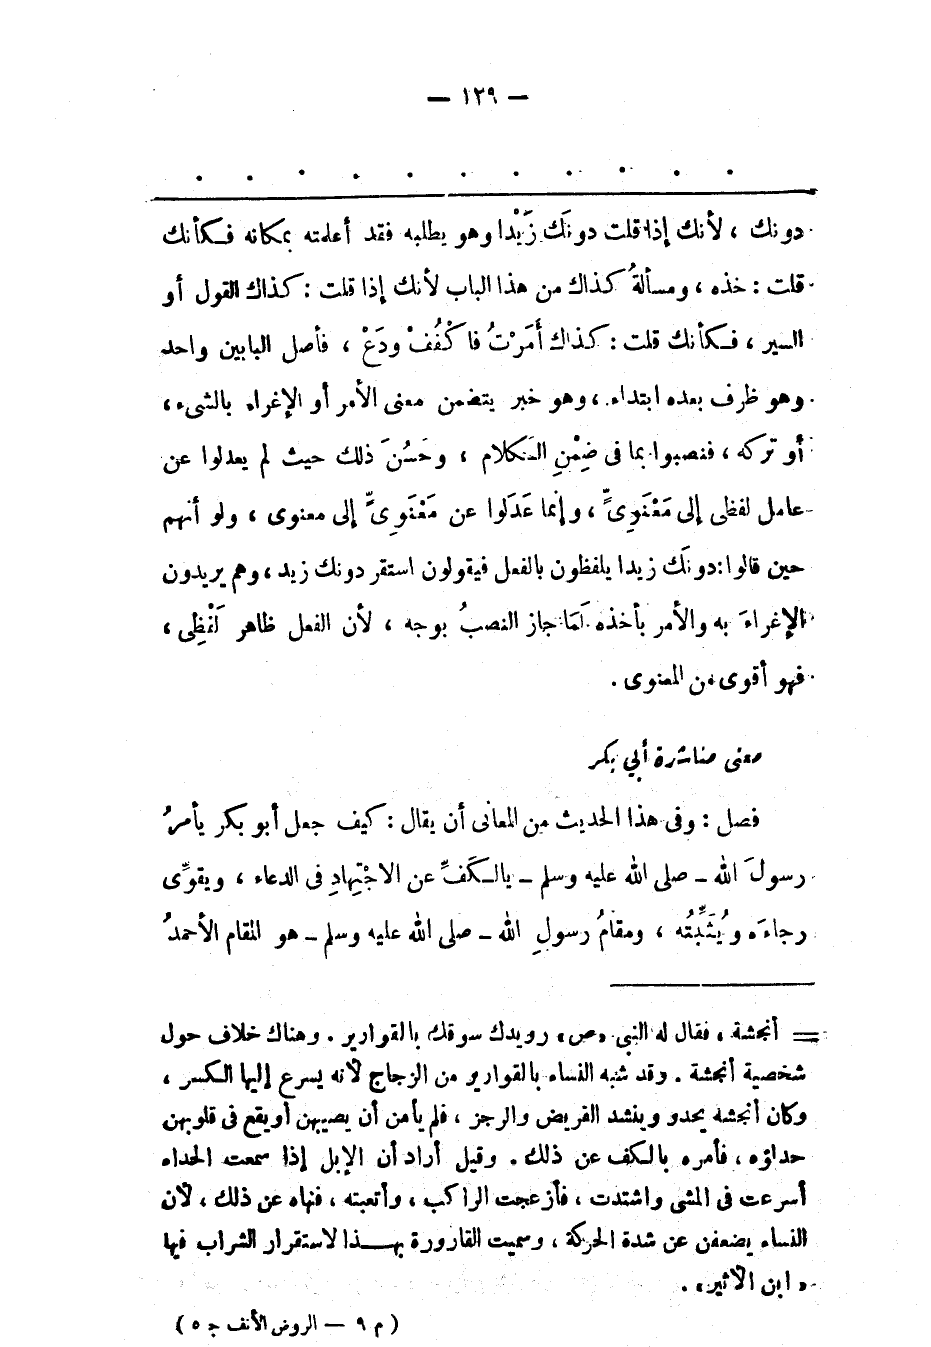 — ١٢٩ —
. . . . . . . . . . .
دونك ، لأنك إذا قلت دونَك زَيْدا وهو يطلبه فقد أعلمته بمكانه فكأنك
قلت : خذه ، ومسألةُ كذاك من هذا الباب لأنك إذا قلت : كذاك القول أو
السير ، فكأنك قلت : كذاك أَمَرْتُ فاكْفُفْ ودَعْ ، فأصل البابين واحد
وهو ظرف بعده ابتداء ، وهو خبر يتضمن معنى الأمر أو الإغراء بالشىء ،
أو تركه ، فنصبوا بما فى ضِمْنِ الكلام ، وحَسُنَ ذلك حيث لم يعدلوا عن
عامل لفظى إلى مَعْنَوِىٍّ ، وإنما عَدَلوا عن مَعْنَوِىٍّ إلى معنوى ، ولو أنهم
حين قالوا : دونَك زيدا يلفظون بالفعل فيقولون استقر دونك زيد ، وهم يريدون
الإغراءَ به والأمر بأخذه لَمَا جاز النصبُ بوجه ، لأن الفعل ظاهر لَفْظِى ،
فهو أقوى من المعنوى .
معنى مناشدة أبي بكر
فصل : وفى هذا الحديث من المعانى أن يقال : كيف جعل أبو بكر يأمرُ
رسولَ الله ــ صلى الله عليه وسلم ــ بالكَفِّ عن الاجْتِهادِ فى الدعاء ، ويقوِّى
رجاءَه ويُثَبِّتُه ، ومقامُ رسولِ الله ــ صلى الله عليه وسلم ــ هو المقام الأحمدُ
= أنجشة ، فقال له النبى «ص» رويدك سوقك بالقوارير . وهناك خلاف حول
شخصية أنجشة . وقد شبه النساء بالقوارير من الزجاج لأنه يسرع إليها الكسر ،
وكان أنجشه يحدو وينشد القريض والرجز ، فلم يأمن أن يصيبهن أو يقع فى قلوبهن
حداؤه ، فأمره بالكف عن ذلك . وقيل أراد أن الإبل إذا سمعت الحداء
أسرعت فى المشى واشتدت ، فأزعجت الراكب ، وأتعبته ، فنهاه عن ذلك ، لأن
النساء يضعفن عن شدة الحركة ، وسميت القارورة بهـــذا لاستقرار الشراب فيها
« ابن الأثير » .
( م ٩ — الروض الأنف جـ ٥ )